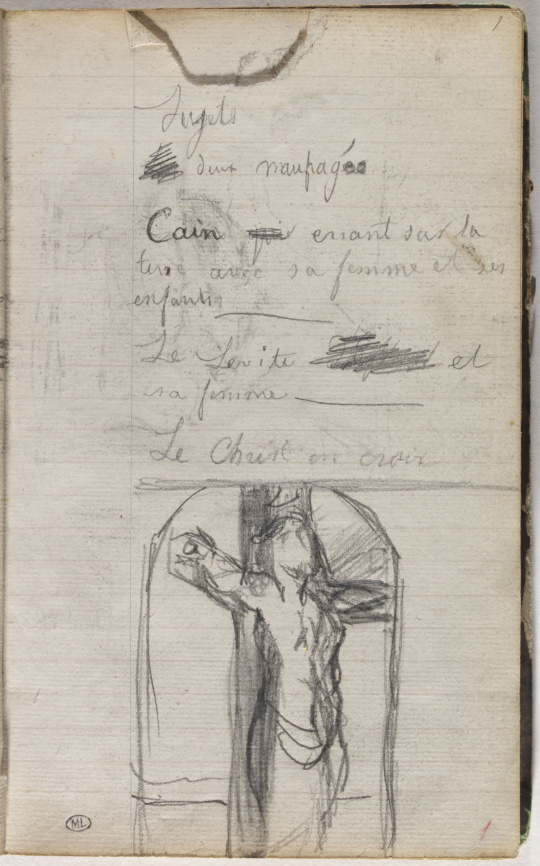 1
Sujets
deux naufragés
Cain qui errant sur la
terre avec sa femme et ses
enfants
Le Levite et
sa femme
Le Christ en croix
ML
1